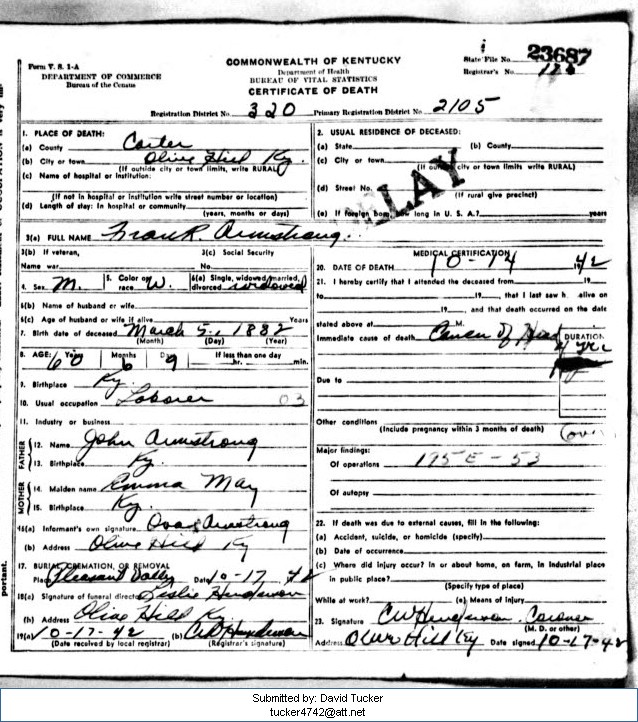 Form V. S. 1-A
DEPARTMENT OF COMMERCE
Bureau of the Census
COMMONWEALTH OF KENTUCKY
Department of Health
BUREAU OF VITAL STATISTICS
CERTIFICATE OF DEATH
State File No. 23687
Registrar's No.
Registration District No. 320 Primary Registration District No. 2105
1. PLACE OF DEATH:
(a) County Carter
(b) City or town Olive Hill Ky.
(If outside city or town limits, write RURAL)
(c) Name of hospital or institution:
(If not in hospital or institution write street number or location)
(d) Length of stay: In hospital or community
(years, months or days)
2. USUAL RESIDENCE OF DECEASED:
(a) State (b) County
(c) City or town
(If outside city or town limits write RURAL)
(d) Street No.
(If rural give precinct)
(e) If foreign born, how long in U. S. A.? years
3(a) FULL NAME Frank Armstrong
3(b) If veteran, Name war
3(c) Social Security No.
4. Sex M. 5. Color or race W. 6(a) Single, widowed, married, divorced widowed
6(b) Name of husband or wife
6(c) Age of husband or wife if alive Years
7. Birth date of deceased March 5, 1882
(Month) (Day) (Year)
8. AGE: Years 60 Months 6 Days 9 If less than one day hr. min.
9. Birthplace Ky.
10. Usual occupation Laborer 03
11. Industry or business
FATHER
12. Name John Armstrong
13. Birthplace Ky.
MOTHER
14. Maiden name Emma May
15. Birthplace Ky.
16(a) Informant's own signature Armstrong
(b) Address Olive Hill Ky
17. BURIAL, CREMATION, OR REMOVAL
Place Pleasant Valley Date 10-17 42
18(a) Signature of funeral director Leslie Henderson
(b) Address Olive Hill Ky
19(a) 10-17-42 (b)
(Date received by local registrar) (Registrar's signature)
DELAY
MEDICAL CERTIFICATION
20. DATE OF DEATH 10-14 1942
21. I hereby certify that I attended the deceased from 19
to 19, that I last saw h alive on
19, and that death occurred on the date
stated above at M.
Immediate cause of death Cancer of Head
DURATION
Due to
Other conditions
(Include pregnancy within 3 months of death)
(over)
Major findings:
Of operations 195E-53
Of autopsy
22. If death was due to external causes, fill in the following:
(a) Accident, suicide, or homicide (specify)
(b) Date of occurrence
(c) Where did injury occur? In or about home, on farm, in industrial place
in public place?
(Specify type of place)
While at work? (e) Means of injury
23. Signature CW Henderson, Coroner
(M. D. or other)
Address Olive Hill Ky Date signed 10-17-42
portant.
Submitted by: David Tucker
tucker4742@att.net